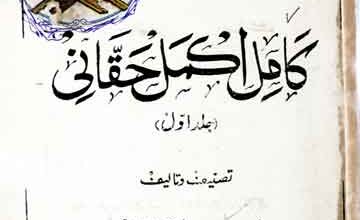 کامل اکمل حقّانی
(جلد اوّل)
تصنیف و تالیف